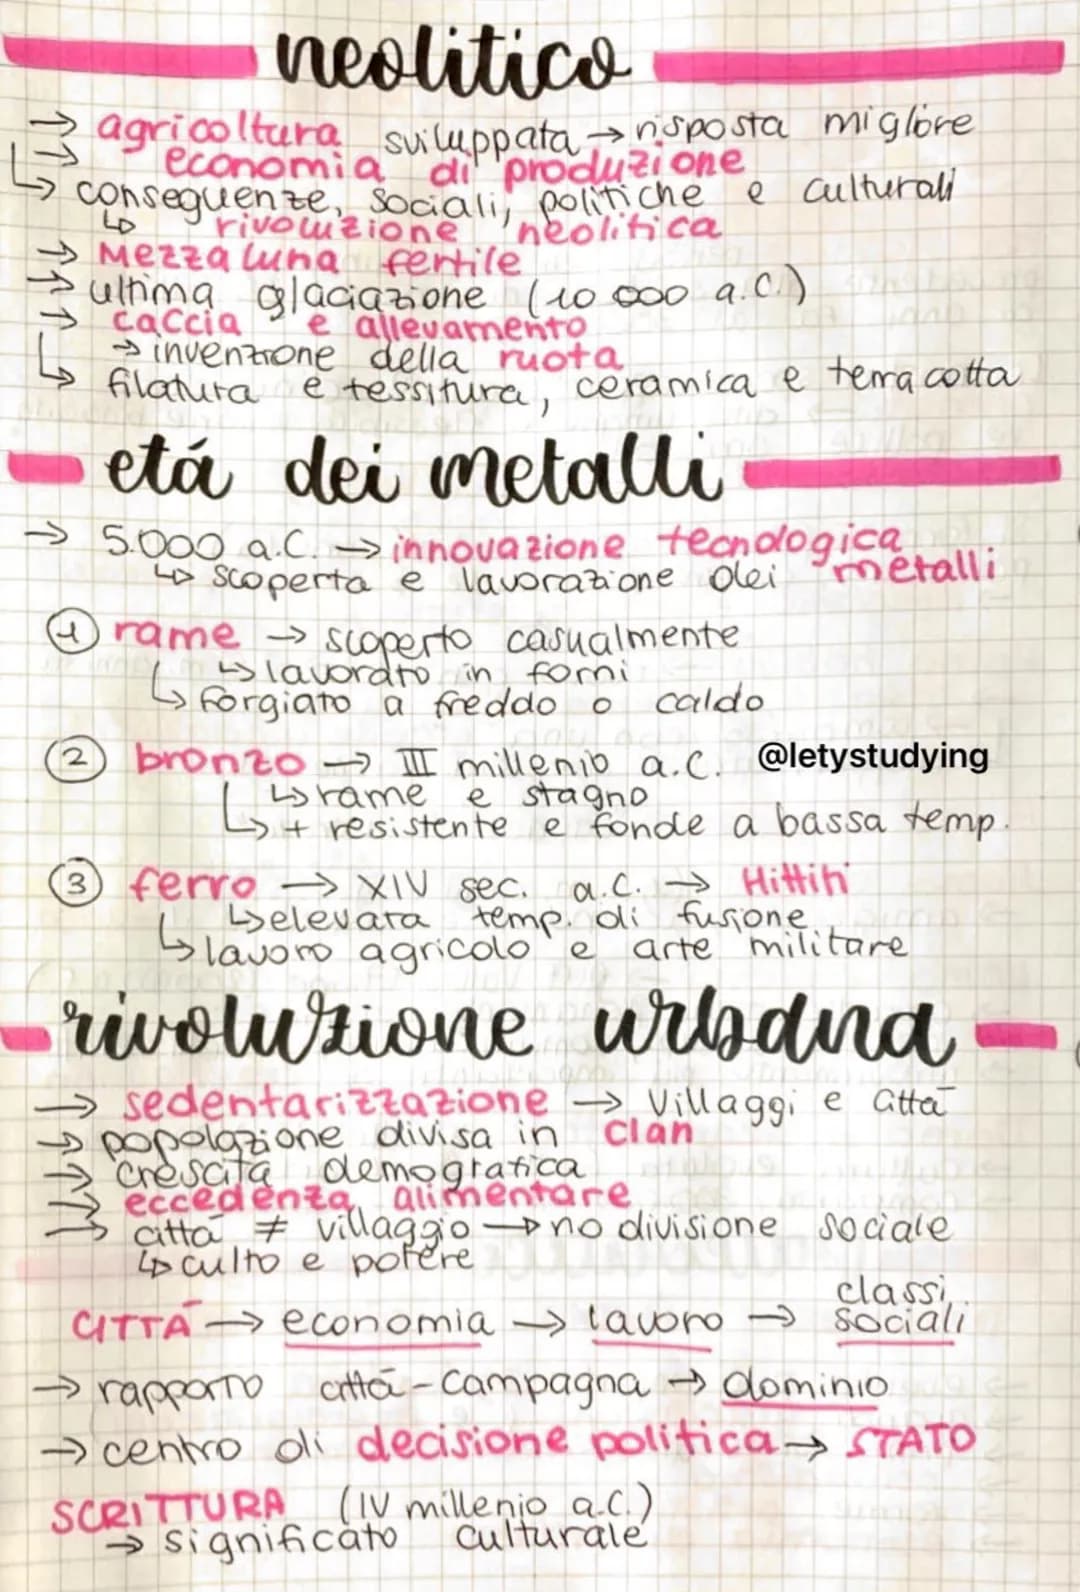 neolitico
→ agricoltura sviluppata → risposta migliore
→ economia di produzione
↳ conseguenze, sociali, politiche e culturali
↳ rivoluzione neolitica
→ Mezzaluna fertile
→ ultima glaciazione (10 000 a.C.)
→ caccia e allevamento
→ invenzione della ruota
↳ filatura e tessitura, ceramica e terracotta
etá dei metalli
→ 5.000 a.C. → innovazione tecnologica
↳ scoperta e lavorazione dei metalli
① rame → scoperto casualmente
↳ lavorato in forni
↳ forgiato a freddo o caldo
② bronzo → III millenio a.C. @letystudying
↳ rame e stagno
↳ + resistente e fonde a bassa temp.
③ ferro → XIV sec. a.C. → Hittiti
↳ elevata temp. di fusione
↳ lavoro agricolo e arte militare
rivoluzione urbana
→ sedentarizzazione → Villaggi e città
→ popolazione divisa in clan
→ crescita demografica
→ eccedenza alimentare
→ città ≠ villaggio → no divisione sociale
↳ culto e potere
CITTÀ → economia → lavoro → classi sociali
→ rapporto città-campagna → dominio
→ centro di decisione politica → STATO
SCRITTURA (IV millenio a.C.)
→ significato culturale